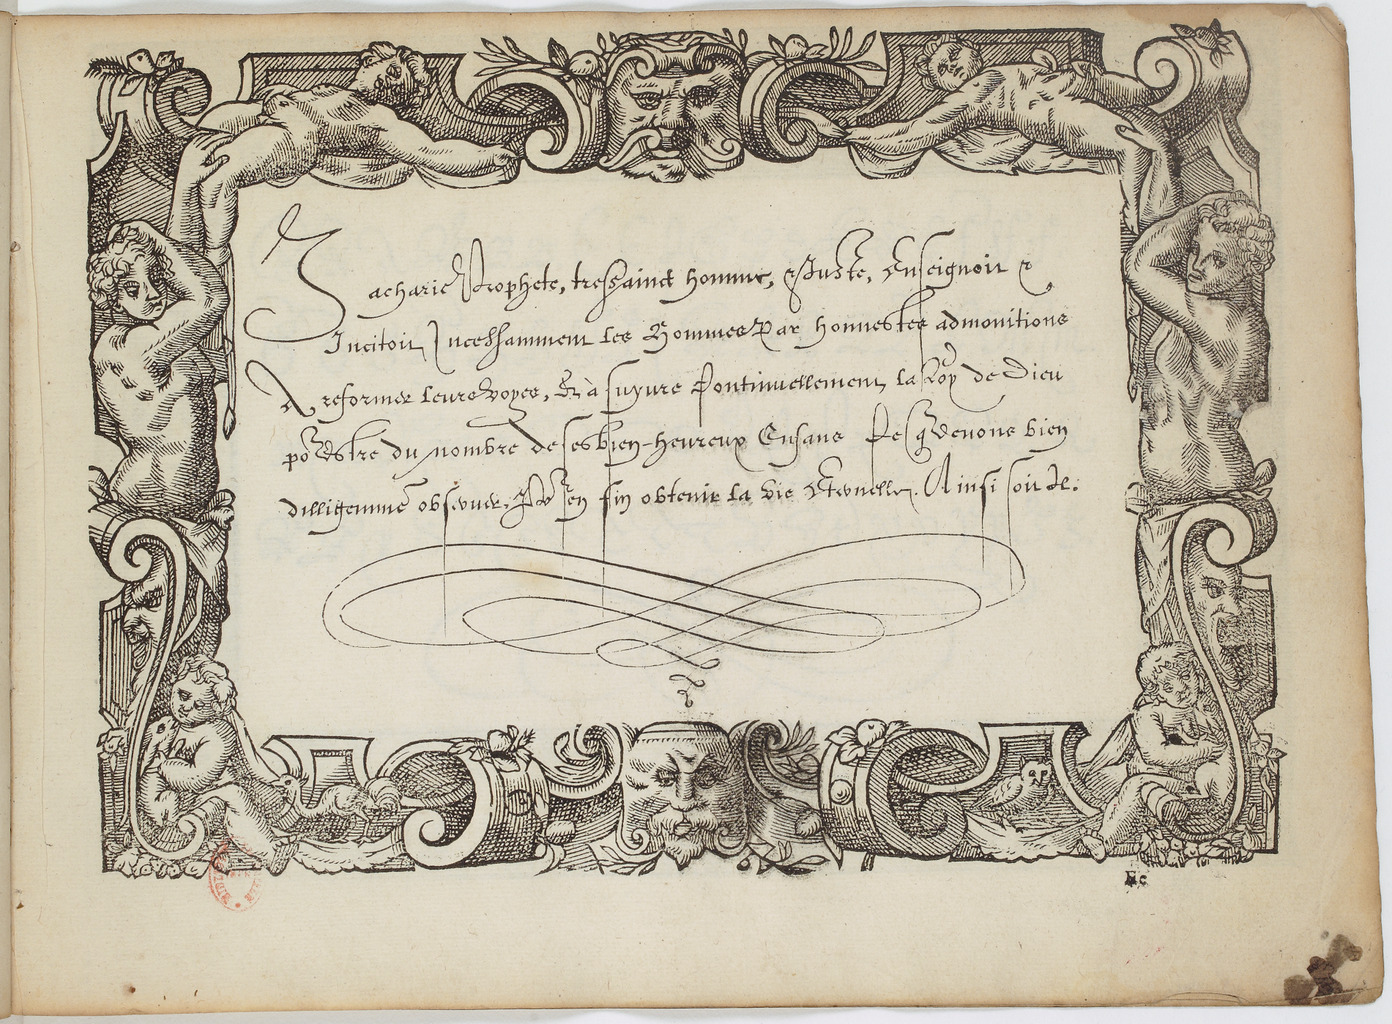 Zacharie Prophete, tressainct homme, & Juste, Enseignoit &
Incitoit Incessamment les Hommes Par honnestes admonitions
A reformer leurs voyes, Et à suyure Continuellement la Loy de Dieu
po Estre du nombre de ses bien-heureux Enfans Ce q devons bien
dilligemmē observer, Po En fin obtenir la vie Eternelle. Ainsi soit Il.
Ec